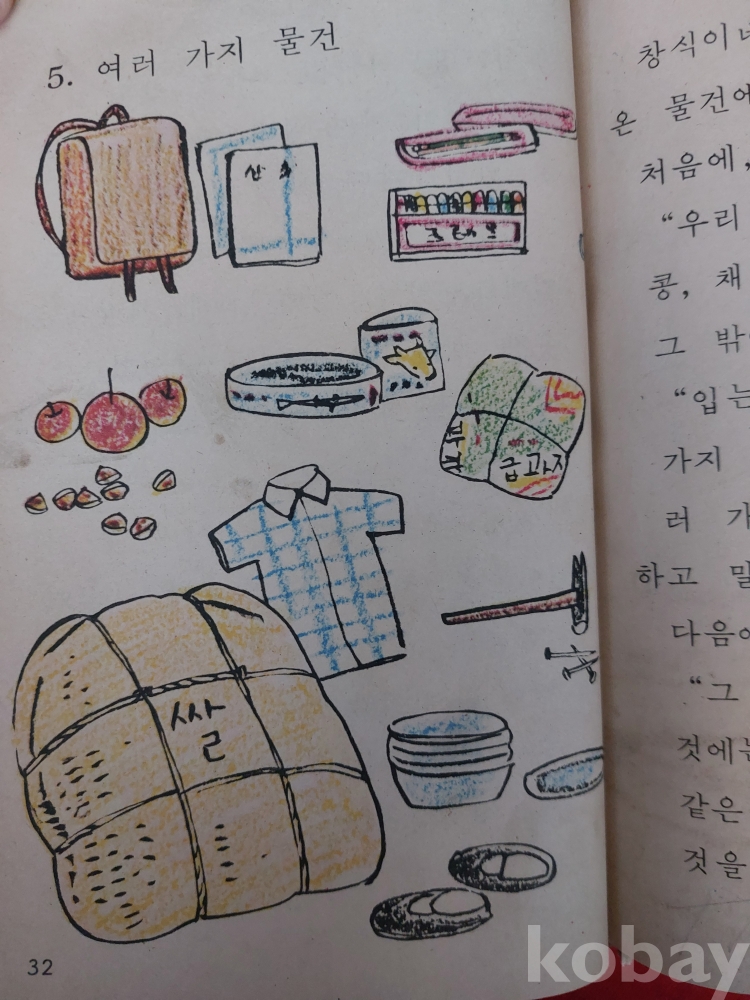 5. 여러 가지 물건
산수
크레파스
부
급과자
쌀
32
창식이네
온 물건에
처음에,
“우리
콩, 채
그 밖에
“입는
가지
러 가
하고 말
다음에
“그
것에는
같은
것을
kobay